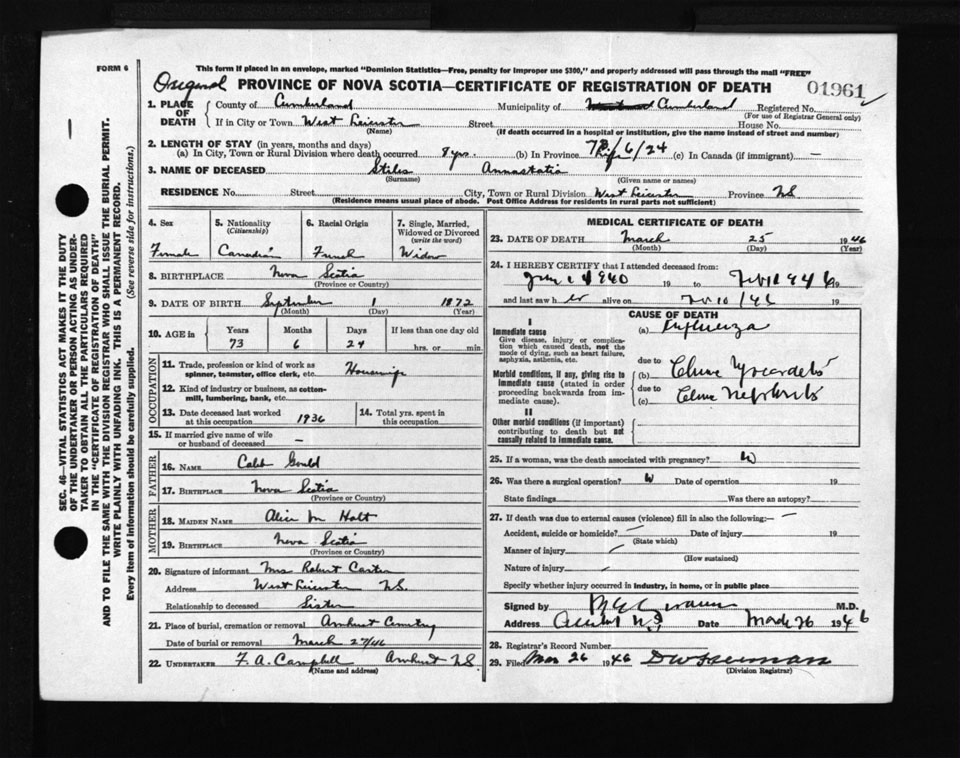 FORM 6
This form if placed in an envelope, marked "Dominion Statistics—Free, penalty for improper use $300," and properly addressed will pass through the mail "FREE"
Original PROVINCE OF NOVA SCOTIA—CERTIFICATE OF REGISTRATION OF DEATH 01961
SEC. 46—VITAL STATISTICS ACT MAKES IT THE DUTY
OF THE UNDERTAKER OR PERSON ACTING AS UNDER-
TAKER TO OBTAIN ALL THE PARTICULARS REQUIRED
IN THE "CERTIFICATE OF REGISTRATION OF DEATH"
AND TO FILE THE SAME WITH THE DIVISION REGISTRAR WHO SHALL ISSUE THE BURIAL PERMIT.
WRITE PLAINLY WITH UNFADING INK. THIS IS A PERMANENT RECORD.
Every item of information should be carefully supplied. (See reverse side for instructions.)
1. PLACE OF DEATH
County of Cumberland Municipality of Cumberland Registered No.
(For use of Registrar General only)
If in City or Town West Leicester Street House No.
(Name) (If death occurred in a hospital or institution, give the name instead of street and number)
2. LENGTH OF STAY (in years, months and days)
(a) In City, Town or Rural Division where death occurred 8 yrs. (b) In Province 73/6/24 (c) In Canada (if immigrant) —
3. NAME OF DECEASED Stiles Annastatia
(Surname) (Given name or names)
RESIDENCE No. Street City, Town or Rural Division West Leicester Province N.S.
(Residence means usual place of abode. Post Office Address for residents in rural parts not sufficient)
4. Sex
Female
5. Nationality
(Citizenship)
Canadian
6. Racial Origin
French
7. Single, Married,
Widowed or Divorced
(write the word)
Widow
8. BIRTHPLACE Nova Scotia
(Province or Country)
9. DATE OF BIRTH September 1 1872
(Month) (Day) (Year)
10. AGE in Years Months Days If less than one day old
73 6 24 hrs. or min.
OCCUPATION
11. Trade, profession or kind of work as
spinner, teamster, office clerk, etc. Housewife
12. Kind of industry or business, as cotton-
mill, lumbering, bank, etc.
13. Date deceased last worked
at this occupation 1936
14. Total yrs. spent in
this occupation
15. If married give name of wife
or husband of deceased —
FATHER
16. NAME Caleb Gould
17. BIRTHPLACE Nova Scotia
(Province or Country)
MOTHER
18. MAIDEN NAME Alice M Holt
19. BIRTHPLACE Nova Scotia
(Province or Country)
20. Signature of informant Mrs Robert Carter
Address West Leicester N.S.
Relationship to deceased Sister
21. Place of burial, cremation or removal Amherst Cemetery
Date of burial or removal March 27/46
22. UNDERTAKER F. A. Campbell Amherst N.S.
(Name and address)
MEDICAL CERTIFICATE OF DEATH
23. DATE OF DEATH March 25 1946
(Month) (Day) (Year)
24. I HEREBY CERTIFY that I attended deceased from:
1940 19 to Feb 10 1946 19
and last saw her alive on Feb 10/46 19
CAUSE OF DEATH
I
Immediate cause
Give disease, injury or complica-
tion which caused death, not the
mode of dying, such as heart failure,
asphyxia, asthenia, etc.
(a) Influenza
due to
Morbid conditions, if any, giving rise to
immediate cause (stated in order
proceeding backwards from im-
mediate cause).
(b) Chronic Myocarditis
due to
(c) Chronic Nephritis
II
Other morbid conditions (if important)
contributing to death but not
causally related to immediate cause.
25. If a woman, was the death associated with pregnancy?
26. Was there a surgical operation? Date of operation 19
State findings Was there an autopsy?
27. If death was due to external causes (violence) fill in also the following:—
Accident, suicide or homicide? Date of injury 19
(State which)
Manner of injury
(How sustained)
Nature of injury
Specify whether injury occurred in industry, in home, or in public place
Signed by M.D.
Address Amherst N.S. Date March 26 1946
28. Registrar's Record Number
29. Filed Mar 26 1946
(Division Registrar)